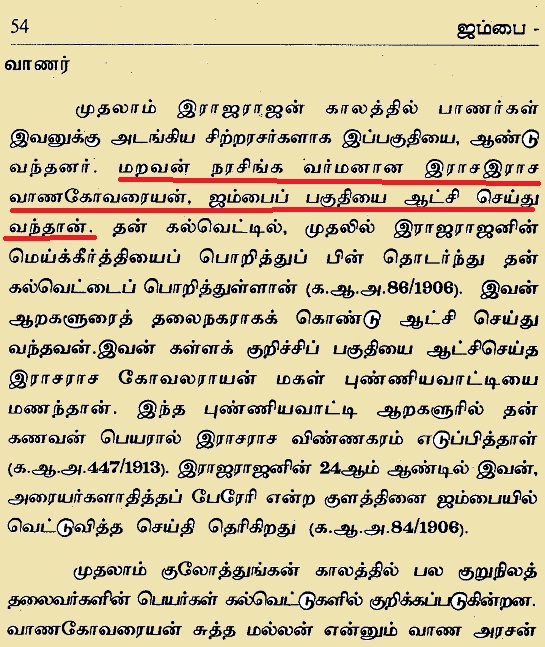 54 ஜம்பை -
வாணர்
முதலாம் இராஜராஜன் காலத்தில் பாணர்கள்
இவனுக்கு அடங்கிய சிற்றரசர்களாக இப்பகுதியை, ஆண்டு
வந்தனர். மறவன் நரசிங்க வர்மனான இராசஇராச
வாணகோவரையன், ஜம்பைப் பகுதியை ஆட்சி செய்து
வந்தான். தன் கல்வெட்டில், முதலில் இராஜராஜனின்
மெய்க்கீர்த்தியைப் பொறித்துப் பின் தொடர்ந்து தன்
கல்வெட்டைப் பொறித்துள்ளான் (க.ஆ.அ.86/1906). இவன்
ஆறகளூரைத் தலைநகராகக் கொண்டு ஆட்சி செய்து
வந்தவன்.இவன் கள்ளக் குறிச்சிப் பகுதியை ஆட்சிசெய்த
இராசராச கோவலராயன் மகள் புண்ணியவாட்டியை
மணந்தான். இந்த புண்ணியவாட்டி ஆறகளூரில் தன்
கணவன் பெயரால் இராசராச விண்ணகரம் எடுப்பித்தாள்
(க.ஆ.அ.447/1913). இராஜராஜனின் 24ஆம் ஆண்டில் இவன்,
அரையர்களாதித்தப் பேரேரி என்ற குளத்தினை ஜம்பையில்
வெட்டுவித்த செய்தி தெரிகிறது (க.ஆ.அ.84/1906).
முதலாம் குலோத்துங்கன் காலத்தில் பல குறுநிலத்
தலைவர்களின் பெயர்கள் கல்வெட்டுகளில் குறிக்கப்படுகின்றன.
வாணகோவரையன் சுத்த மல்லன் என்னும் வாண அரசன்